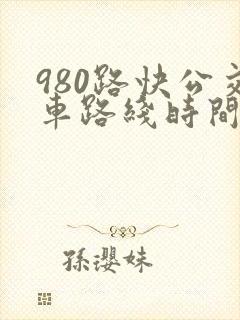 980路快公交
車路綫時間
孫瓔妹